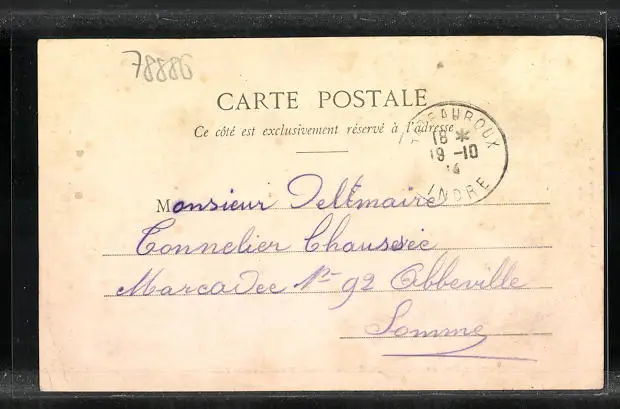 78886
CARTE POSTALE
Ce côté est exclusivement réservé à l'adresse
CHATEAUROUX
18 *
19 -10
14
INDRE
Monsieur Deltmaire
Tonnelier Chaussée
Marcadée N° 92 Abbeville
Somme